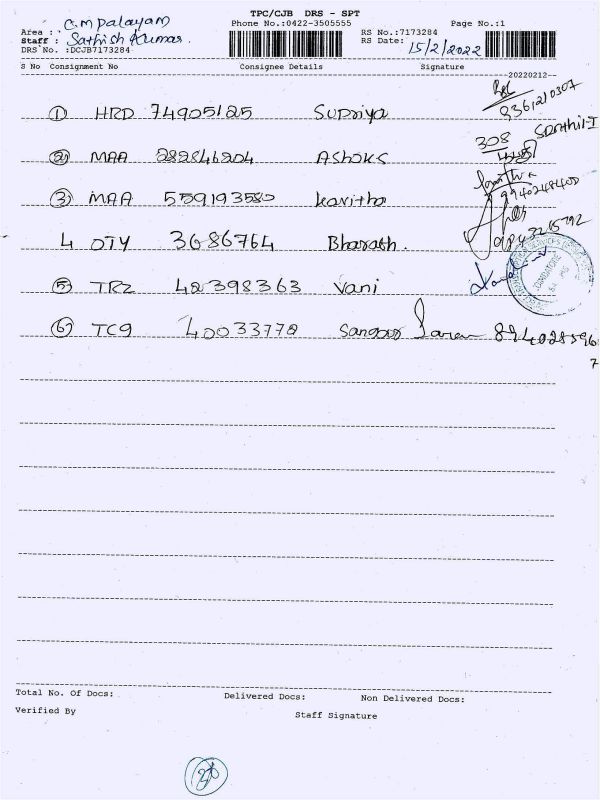 TPC/CJB DRS - SPT
Phone No.:0422-3505555 Page No.:1
Area : G.m palayam
Staff : Sathish Kumar.
DRS No. :DCJB7173284
RS No.:7173284
RS Date: 15/2/2022
S No Consignment No Consignee Details Signature
--20220212--
1 HRD 74905125 Supriya 9361210307
2 MAA 282846204 Ashok S 308
3 MAA 559193580 Kavitha 9940248400
4 OTY 3686764 Bharath. 9843265792
5 TRZ 42398363 Vani
COIMBATORE
6 TC9 40033778 8940285967
Total No. Of Docs: Delivered Docs: Non Delivered Docs:
Verified By Staff Signature